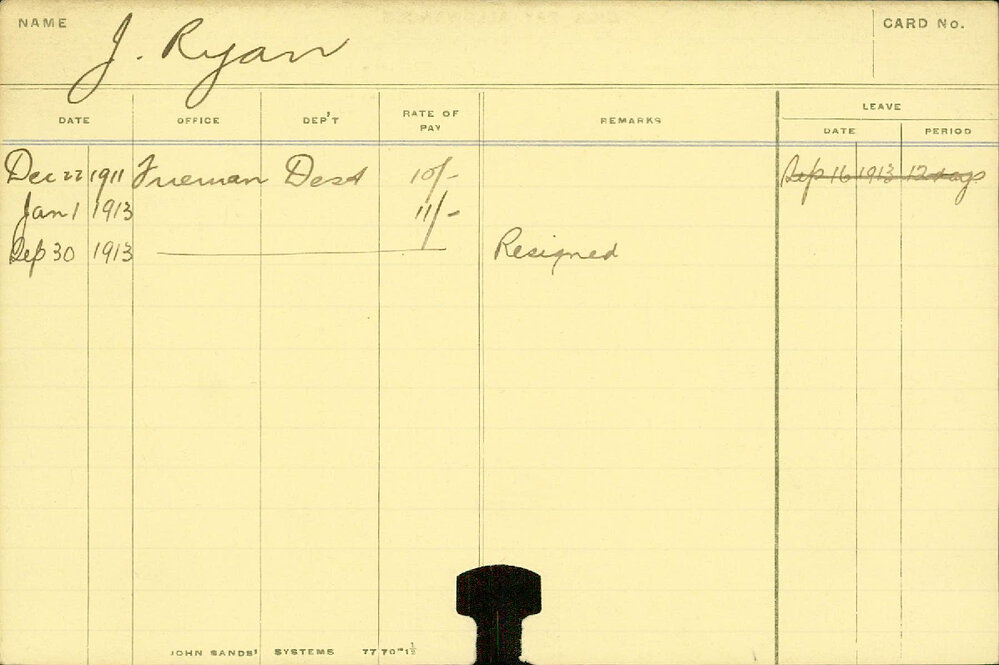 NAME J. Ryan CARD No.
DATE OFFICE DEP'T RATE OF PAY REMARKS LEAVE
DATE PERIOD
Dec 22 1911 Fireman Dest 10/- Sep 16 1913 12 days
Jan 1 1913 11/-
Sep 30 1913 Resigned
JOHN SANDS' SYSTEMS 77 70